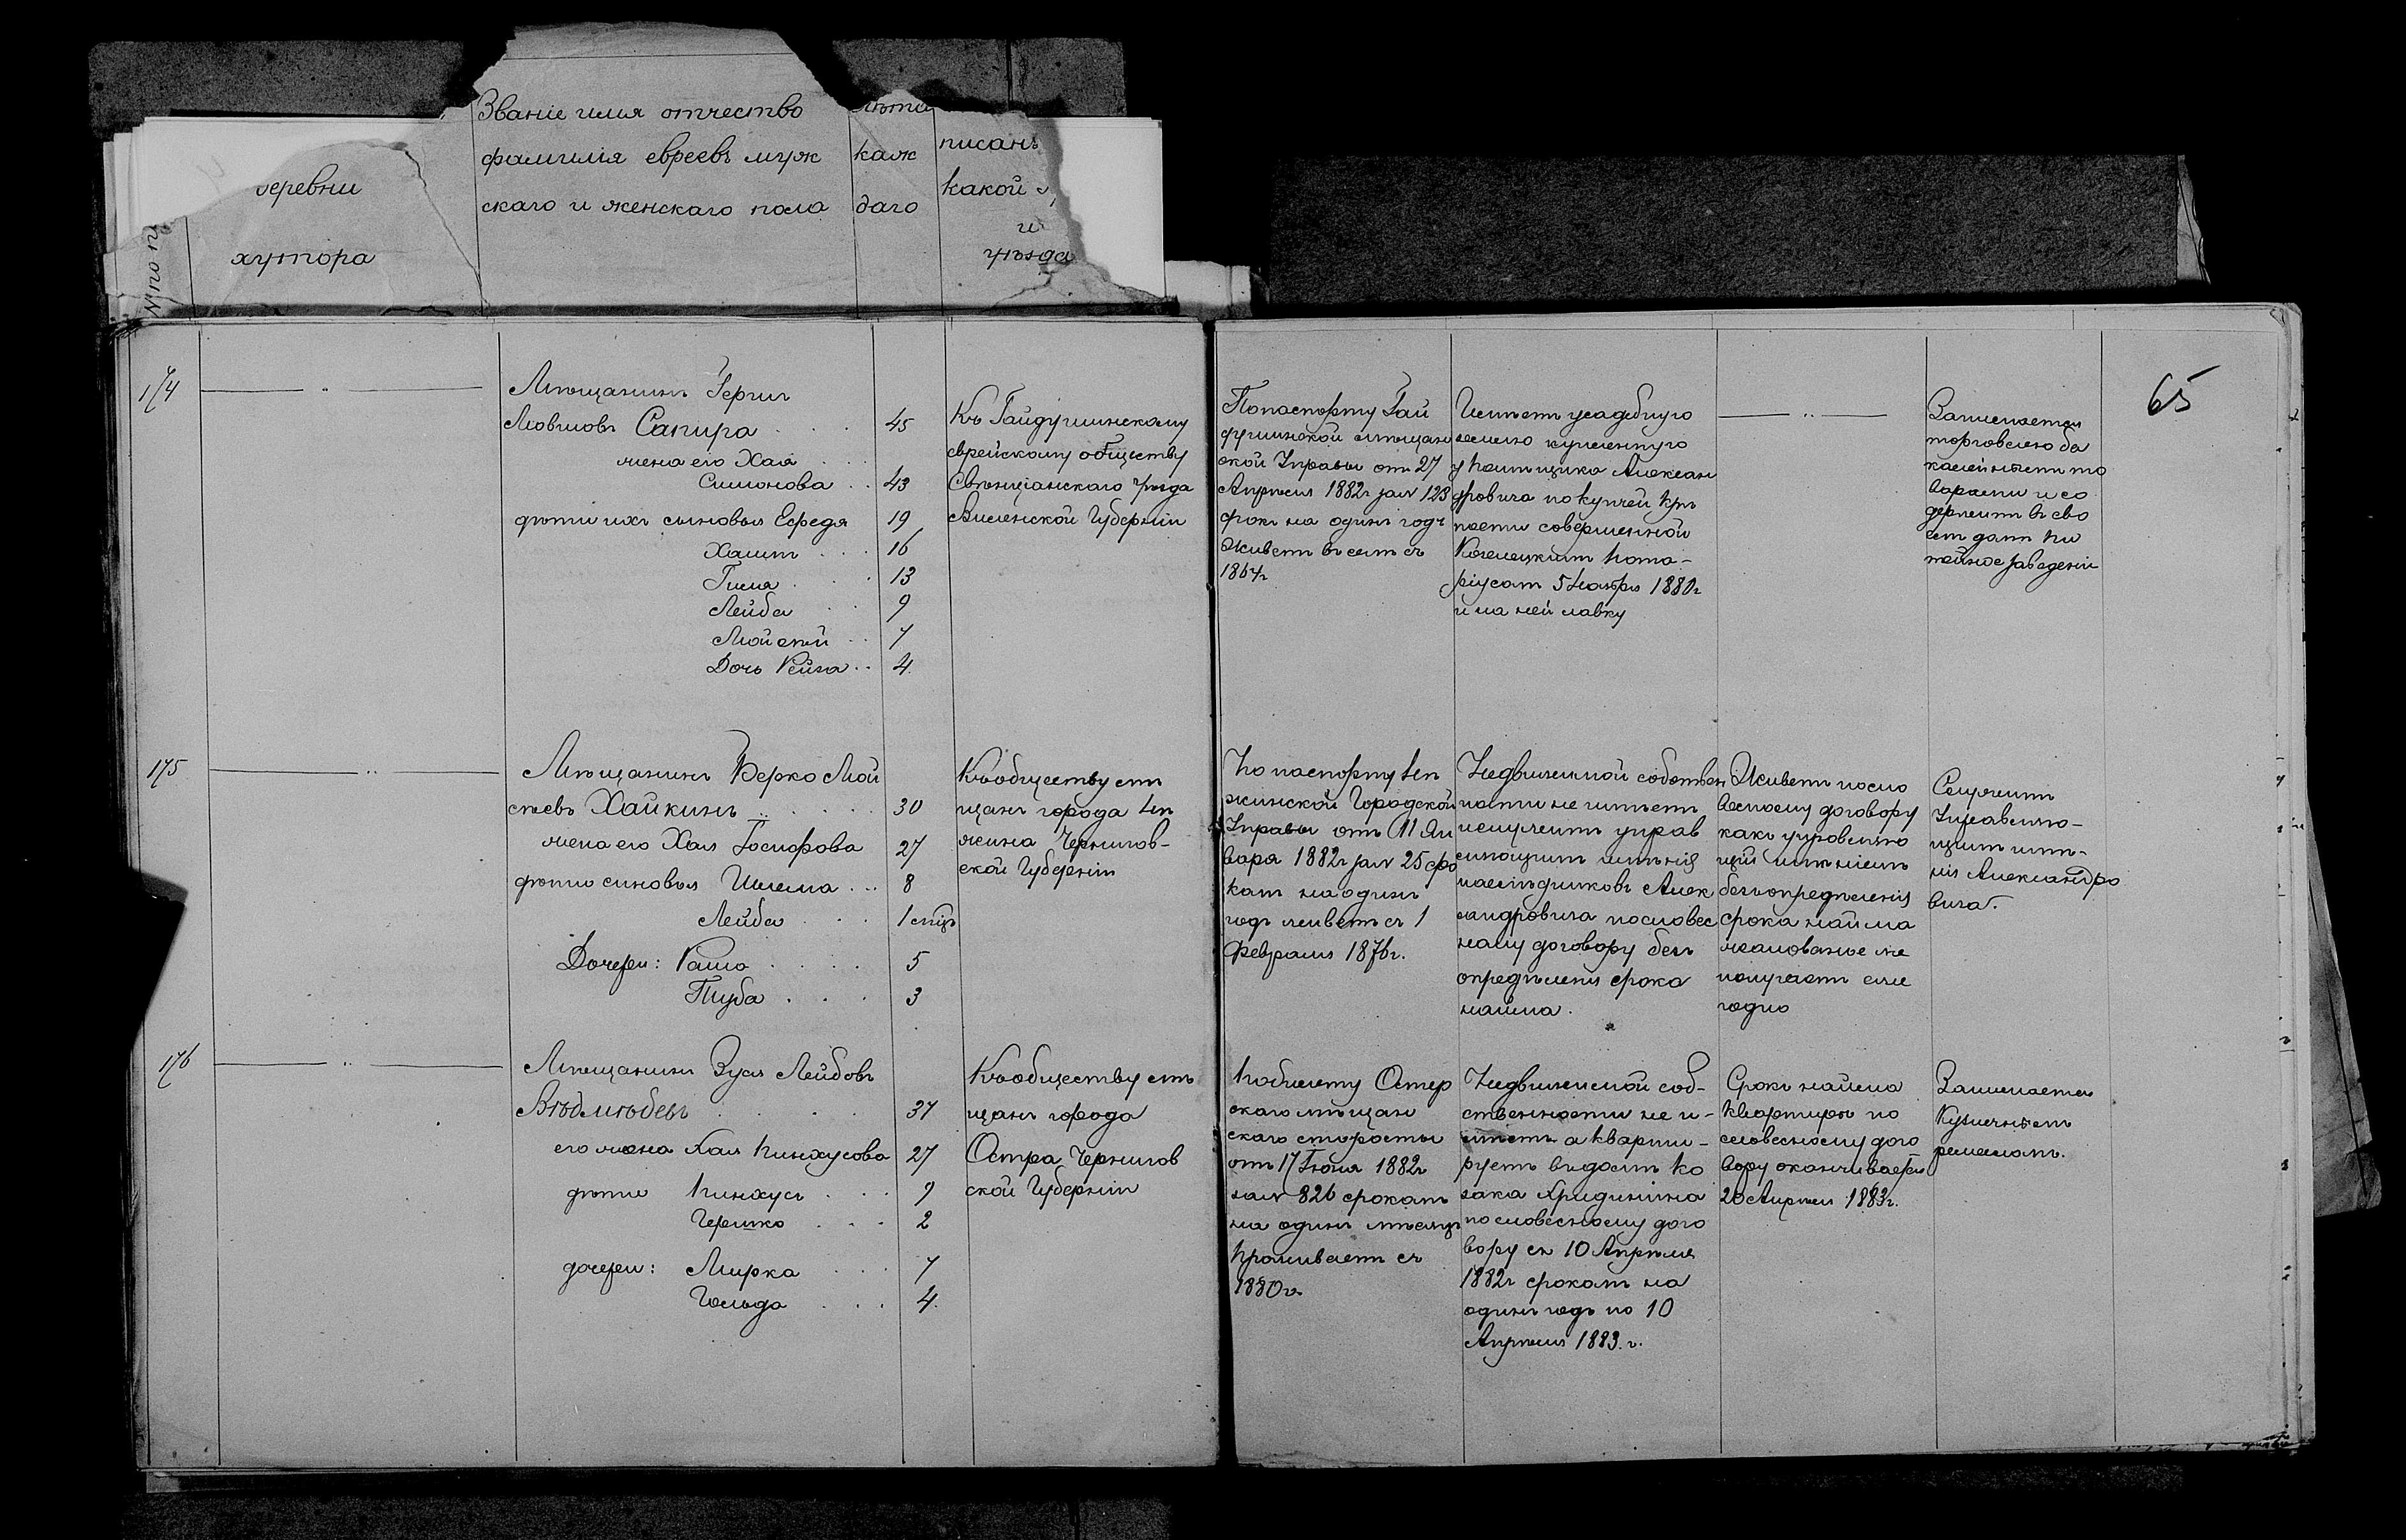 Званіе имя отчество
фамилія евреевъ муж
скаго и женскаго пола
лѣта
каж
даго
писанъ
какой
и
уѣзда
деревни
хутора
65
174
Мѣщанинъ Герцъ
Мовшовъ Сапира 45
жена его Хая
Симонова 43
дѣти ихъ сыновья Есредя 19
Хаимъ 16
Гиля 13
Лейба 9
Мойсей 7
Дочь Рейза 4
Къ Гайдучишскому
еврейскому обществу
Свѣнціанскаго уѣзда
Виленской Губерніи
По паспорту Гай
дучишской мѣщан
ской Управы отъ 27
Апрѣля 1882г за № 123
срокъ на одинъ годъ
Живетъ въ селѣ съ
1864г
Имѣетъ усадебную
землю купленную
у помѣщика Алексан
дровича по купчей крѣ
пости совершенной
Козелецкимъ Нота-
ріусомъ 5 Ноября 1880г
и на ней лавку
Занимается
торговлею ба
калейными то
варами и со
держитъ въ сво
ем домѣ пи
тейное заведеніе
175
Мѣщанинъ Берко Мой
сѣевъ Хайкинъ 30
жена его Хая Іосифова 27
дѣти сыновья Шлема 8
Лейба 1 мѣц
Дочери: Раша 5
Тиуба 3
Къ обществу мѣ
щанъ города Нѣ
жина Чернигов-
ской Губерніи
По паспорту Нѣ
жинской Городской
Управы отъ 11 Ян
варя 1882г за № 25 сро
комъ на одинъ
годъ живетъ съ 1
Февраля 1876г.
Недвижимой собствен
ности не имѣетъ
и служитъ управ
ляющимъ имѣнія
наслѣдниковъ Алек
сандровича по словес
ному договору безъ
опредѣленія срока
найма.
Живетъ по сло
весному договору
какъ управляю
щій имѣніемъ
безъ опредѣленія
срока найма
жалованье же
получаетъ еже
годно
Служитъ
Управляю-
щимъ имѣ-
нія Александро
вича.
176
Мѣщанинъ Зусь Лейбовъ
37
его жена Хая Пинхусова 27
дѣти Пинхусъ 9
Гершко 2
дочери: Мирка 7
Гольда 4
Къ обществу мѣ
щанъ города
Остра Чернигов
ской Губерніи
По билету Остер
скаго мѣщан
скаго старосты
отъ 17 Іюня 1882г
за № 826 срокомъ
на одинъ мѣсяцъ
Проживаетъ съ
1880г
Недвижимой соб-
ственности не и-
мѣетъ а кварти-
руетъ въ домѣ ко
зака Хридинина
по словесному дого
вору съ 10 Апрѣля
1882г срокомъ на
одинъ годъ по 10
Апрѣля 1883. г.
Срокъ найма
квартиры по
словесному дого
вору оканчивается
20 Апрѣля 1883г.
Занимается
Кузнечнымъ
ремесломъ.